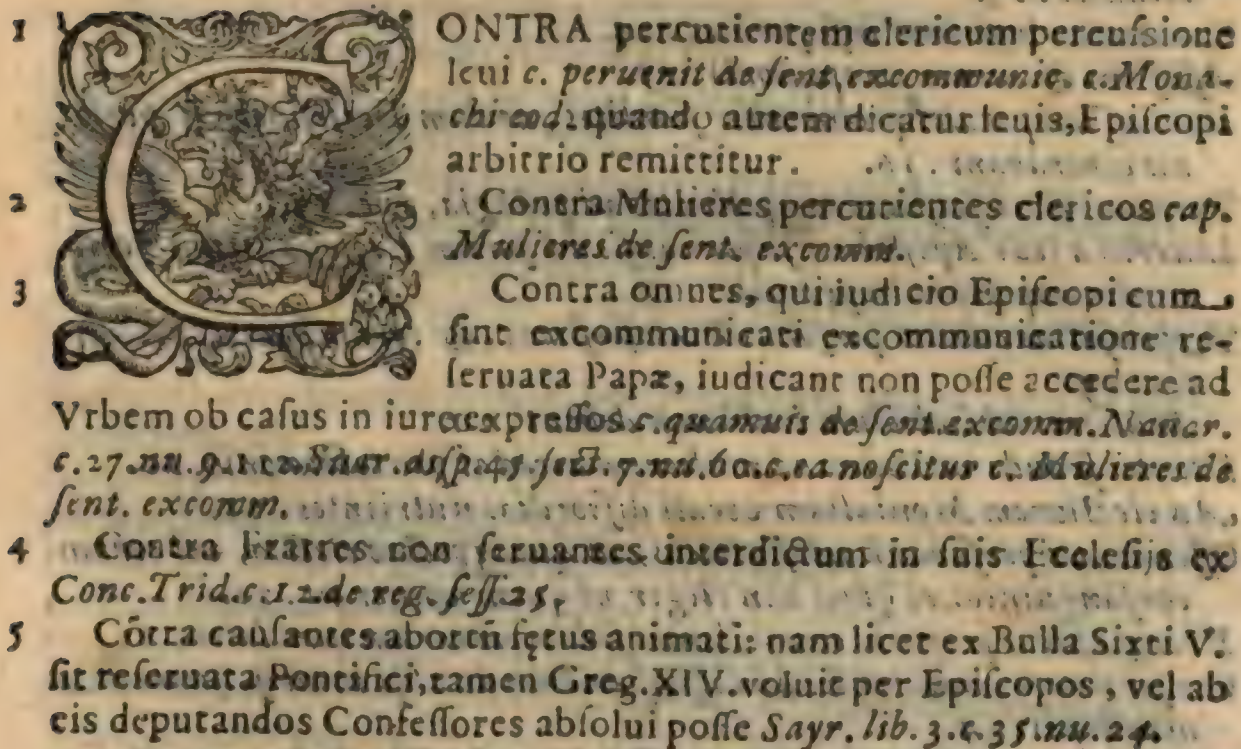 1 CONTRA percutientem clericum percuſsione
leui c. peruenit de ſent. excommunic. c. Mona-
chi eod. quando autem dicatur leuis, Epiſcopi
arbitrio remittitur.
2 Contra Mulieres percutientes clericos cap.
Mulieres de ſent. excomm.
3 Contra omnes, qui iudicio Epiſcopi cum
ſint excommunicati excommunicatione re-
ſeruata Papæ, iudicant non poſſe accedere ad
Vrbem ob caſus in iure expreſſos c. quamuis de ſent. excomm. Nauar.
c. 27. nu. 9. Suar. diſp. 45. ſect. 7. nu. ea noſcitur c. Mulieres de
ſent. excomm.
4 Contra Fratres non ſeruantes interdictum in ſuis Eccleſijs ex
Conc. Trid. c. 12. de reg. ſeſſ. 25.
5 Cōtra cauſantes abortū fętus animati: nam licet ex Bulla Sixti V.
ſit reſeruata Pontifici, tamen Greg. XIV. voluit per Epiſcopos, vel ab
eis deputandos Confeſſores abſolui poſſe Sayr. lib. 3. c. 35. nu. 24.